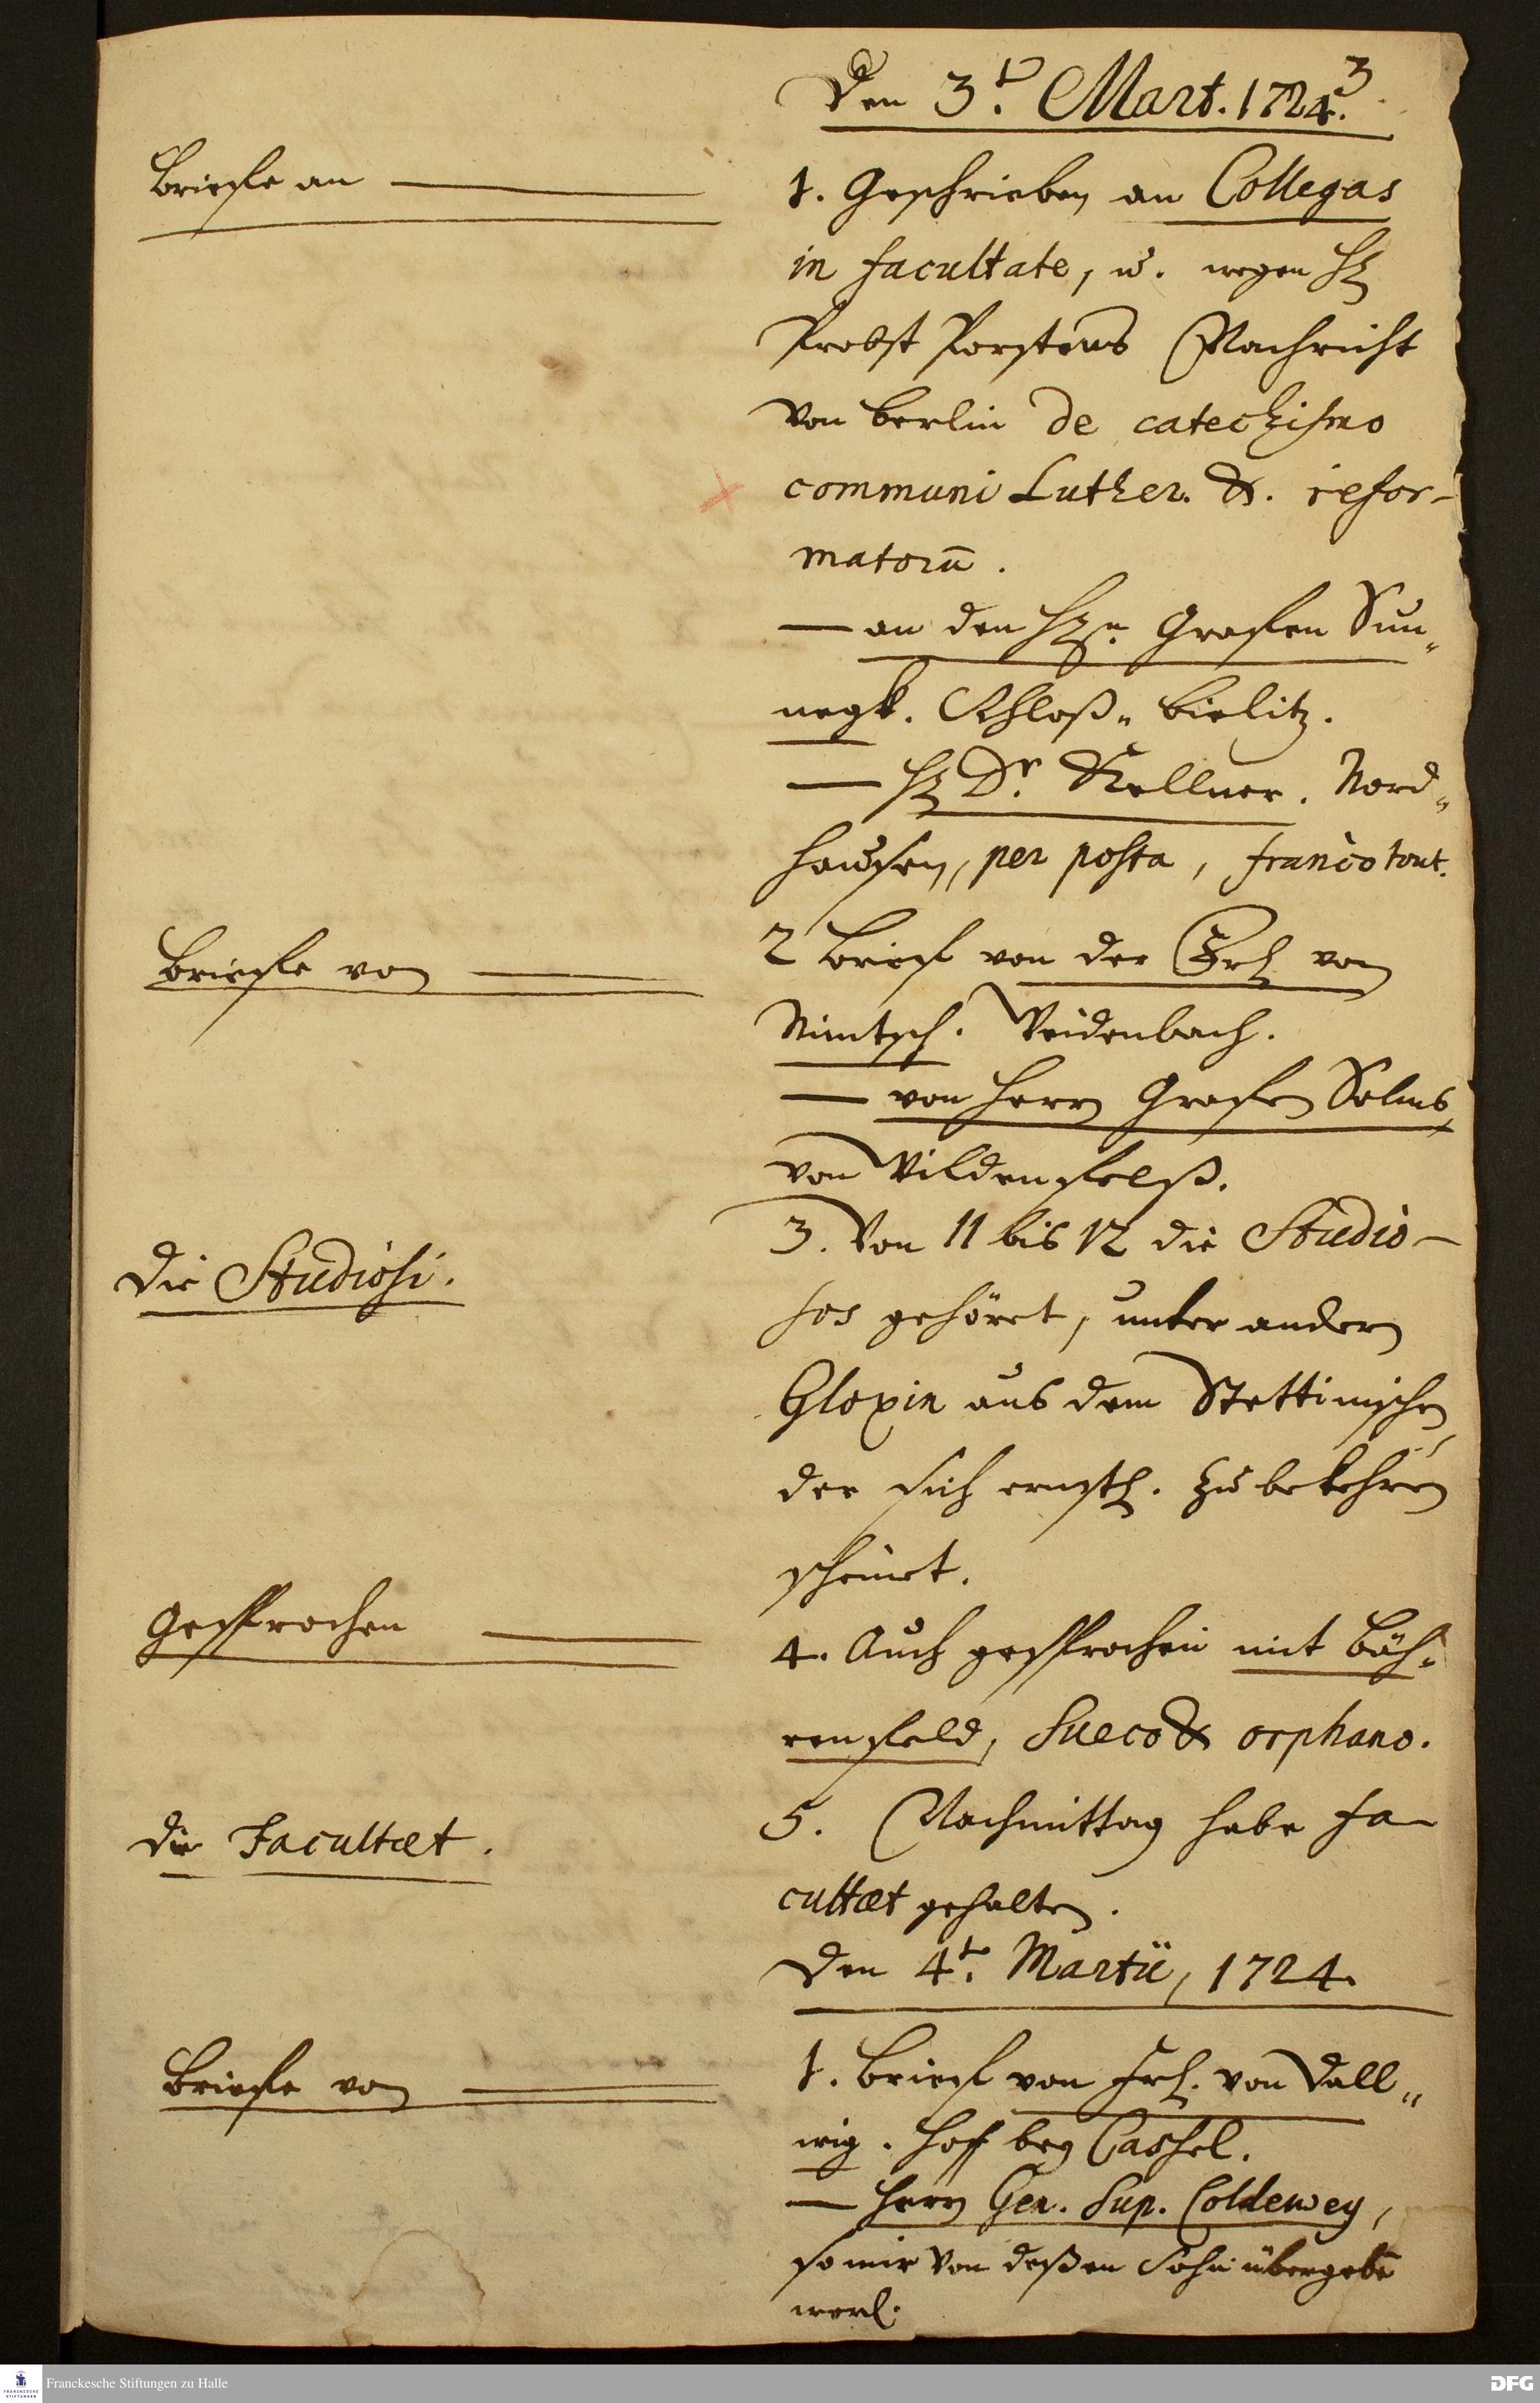 3
Den 3.t Mart. 1724.
Briefe an
1. Geschrieben an Collegas
in facultate, u. wegen H
Probst Porstens Nachricht
von Berlin de catechismo
communi Luther. &. refor-
matorū.
— an den Hn. Grafen Sun„
negk. Schloß„ Bielitz.
— H Dr. Kellner. Nord„
hausen, per posta, franco tout.
Briefe von
2 Brief von der Frl von
Nimtsch. Weidenbach.
— von Herrn Grafen Solms,
von Wildenfelß.
Die Studiosi.
3. Von 11 bis 12 die Studio-
sos gehöret, unter andern
Gloxin aus dem Stettinischen,
der sich ernstl. zu bekehren
scheinet.
Gesprochen
4. Auch gesprochen mit Bäh„
renfeld, Sueco & orphano.
Die Facultæt.
5. Nachmittag habe Fa-
cultæt gehalten.
Den 4.t Martii, 1724.
Briefe von
1. Brief von Frl. von Dall„
wig. Hoff bey Cassel.
— Herrn Gen. Sup. Coldewey,
so mir von deßen Sohn übergebē
word.
Franckesche Stiftungen zu Halle
DFG